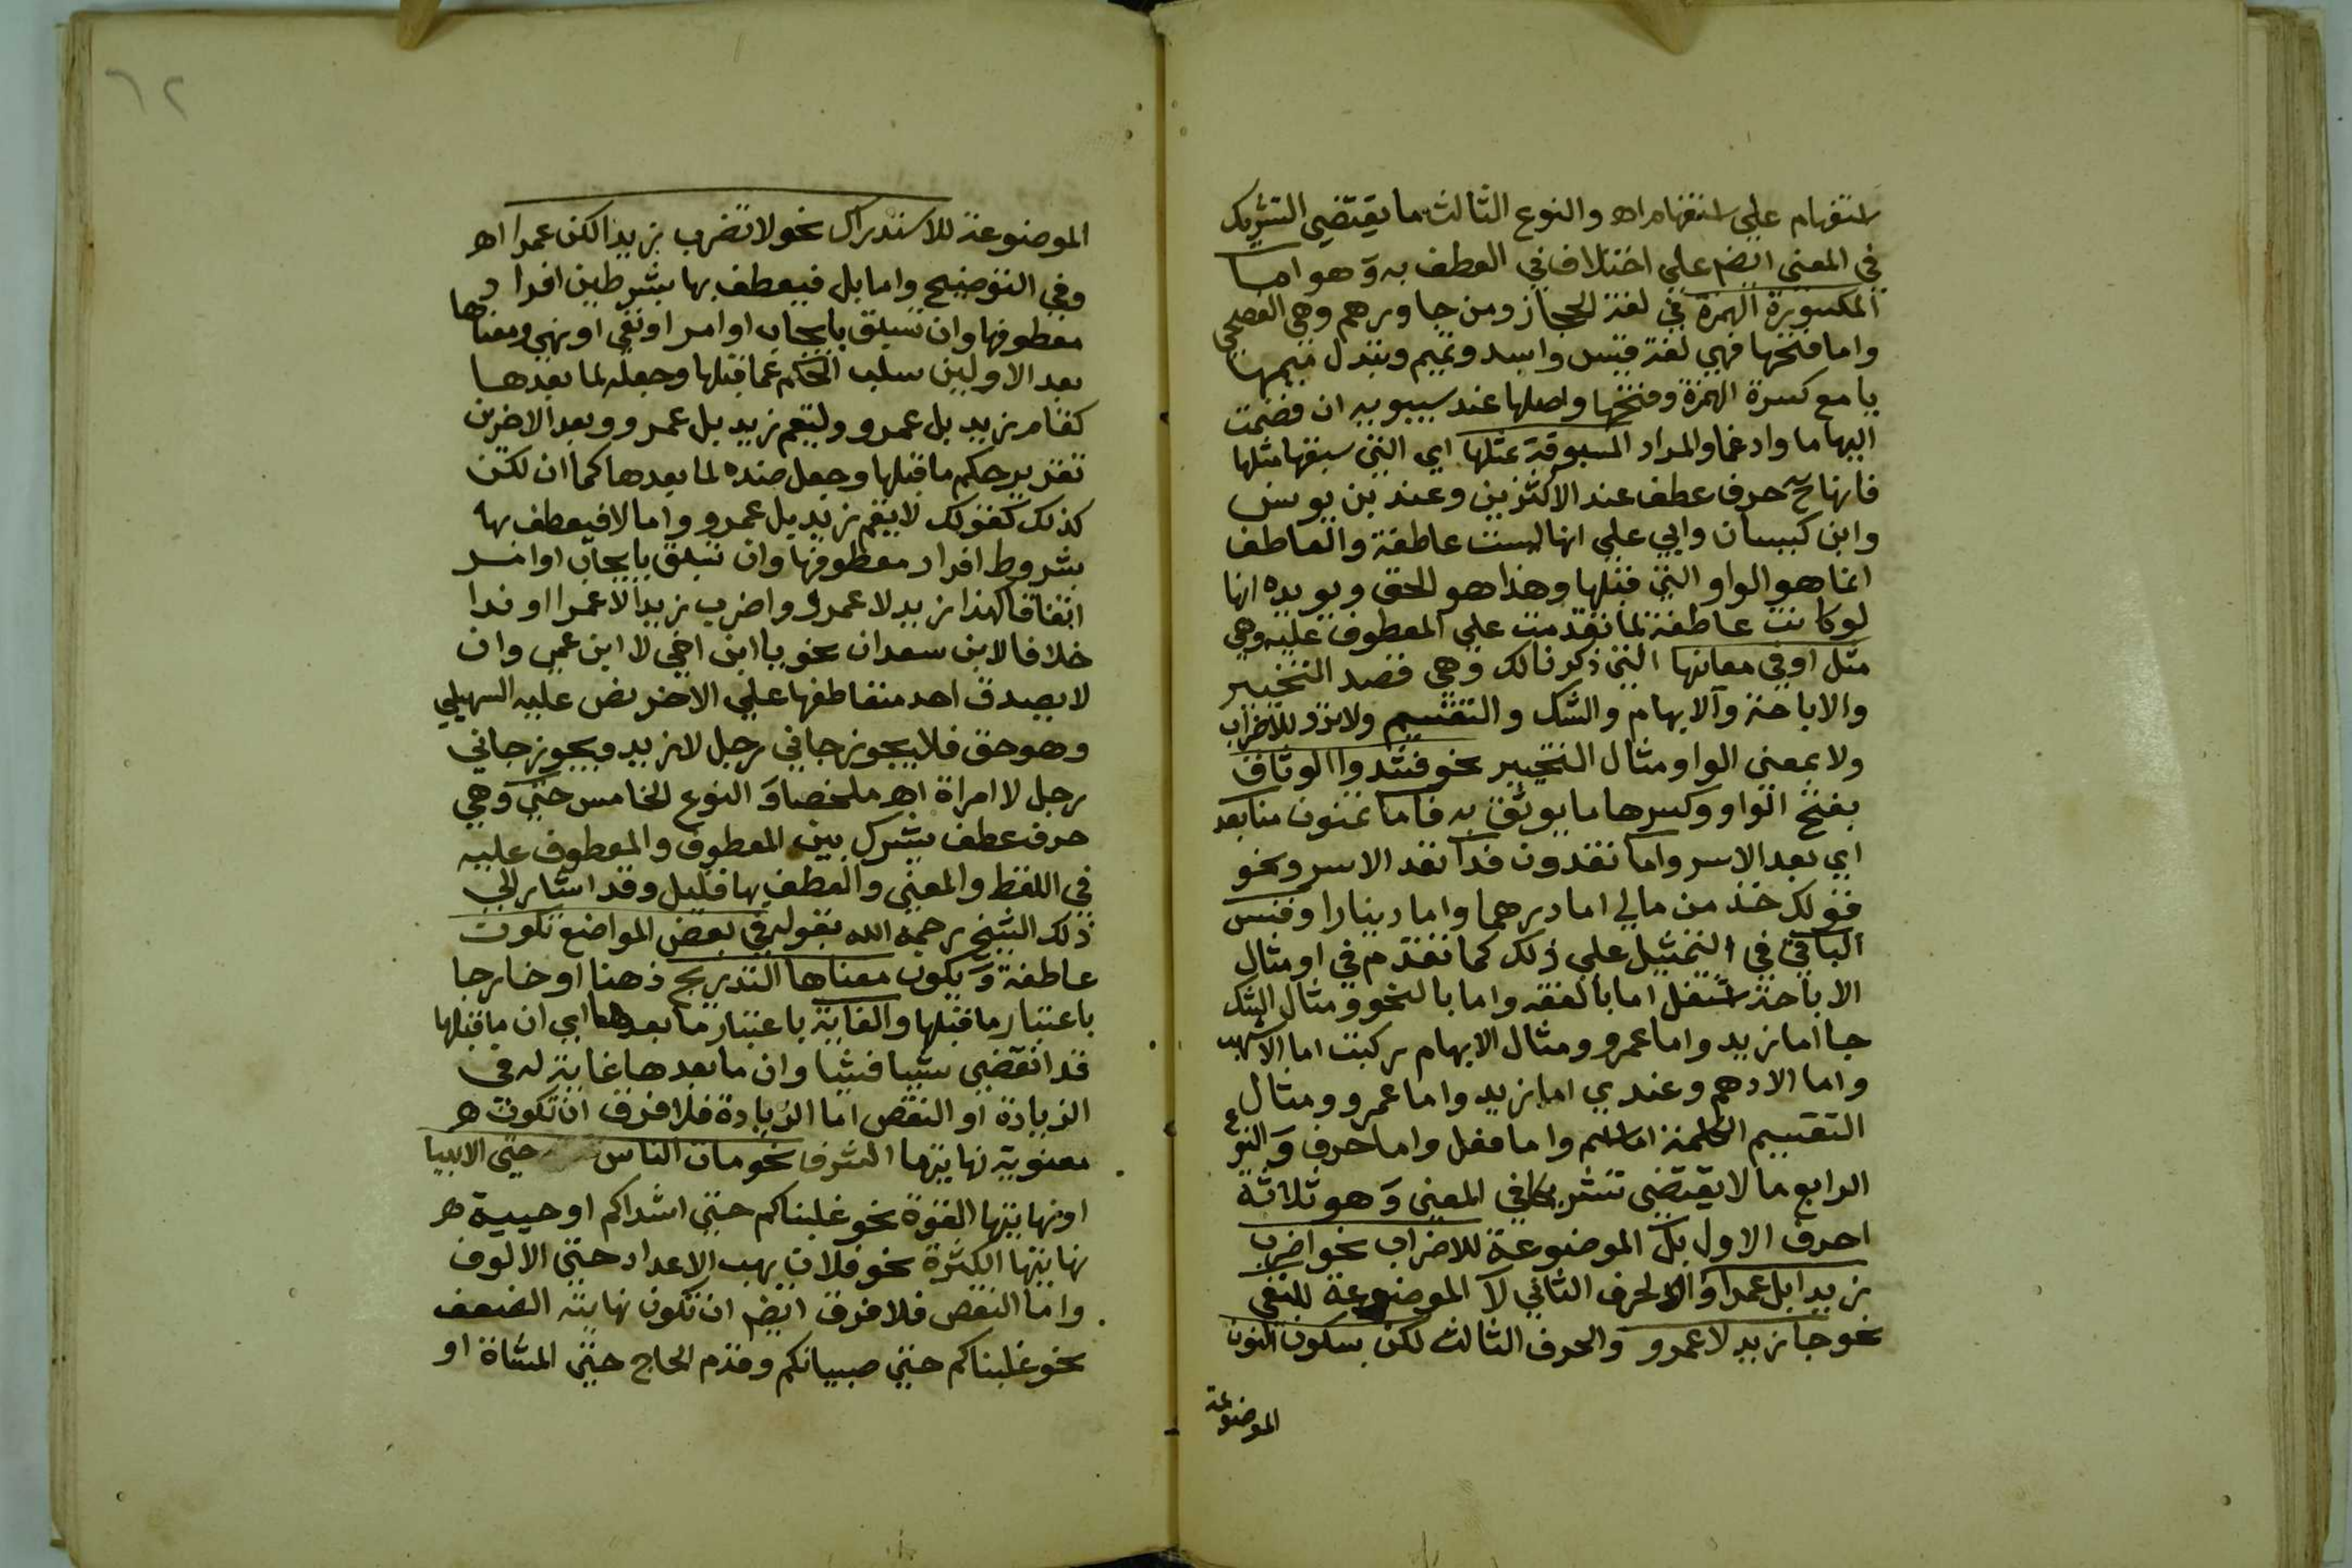 استفهام علي استفهام اه والنوع الثالث ما يقتضي التشريك
في المعني ايضا علي اختلاف في العطف به وهو اما
المكسورة الهمزة في لغة الحجاز ومن جاورهم وهي الفصحي
واما فتحها فهي لغة قيس واسد وتميم وتبدل ميمها
يا مع كسرة الهمزة وفتحها واصلها عند سيبويه ان فضمت
اليها ما وادغما والمراد المسبوقة بمثلها اي التي سبقها مثلها
فانها ح حرف عطف عند الاكثرين وعند بن يونس
وابن كيسان وابي علي انها ليست عاطفة والعاطف
انما هو الواو التي قبلها وهذا هو الحق ويويده انها
لو كانت عاطفة لما تقدمت علي المعطوف عليه وهي
مثل او في معانيها التي ذكرنا لك وهي قصد التخيير
والاباحة والابهام والشك والتقسيم ولا ترد للاضراب
ولا بمعني الواو مثال التخيير نحو فشدوا الوثاق
بفتح الواو وكسرها ما يوثق به فاما تمنون منا بعد
اي بعد الاسر واما تفدون فدا نقد الاسر ونحو
قولك خذ من مالي اما درهما واما دينارا وقس
الباقي في التمثيل علي ذلك كما تقدم في او مثال
الاباحة اشتغل اما بالفقه واما بالنحو ومثال الشك
جا اما زيد واما عمرو ومثال الابهام ركبت اما الاشهب
واما الادهم وعندي اما زيد واما عمرو ومثال
التقسيم الكلمة اما اسم واما فعل واما حرف والنوع
الرابع ما لا يقتضي تشريكا في المعني وهو ثلاثة
احرف الاول بل الموضوعة للاضراب نحو اضرب
زيدا بل عمرا والحرف الثاني لا الموضوعة للنفي
نحو جا زيد لا عمرو والحرف الثالث لكن بسكون النون
الموضوعة
٦٢
الموضوعة للاستدراك نحو لا تضرب زيدا لكن عمرا اه
وفي التوضيح واما بل فيعطف بها بشرطين افراد
معطوفها وان تسبق بايجاب او امر او نفي او نهي ومعناها
بعد الاولين سلب الحكم عما قبلها وجعله لما بعدها
كقام زيد بل عمرو وليقم زيد بل عمرو وبعد الاخرين
تقرير حكم ما قبلها وجعل ضده لما بعدها كما ان لكن
كذلك كقولك لا يقم زيد بل عمرو واما لا فيعطف بها
بشروط افراد معطوفها وان تسبق بايجاب او امر
اتفاقا كهذا زيد لا عمرو واضرب زيدا لا عمرا او ندا
خلافا لابن سعدان نحو يا ابن اخي لا ابن عمي وان
لا يصدق احد متعاطفها علي الاخر نص عليه السهيلي
وهو حق فلا يجوز جاني رجل لا زيد ويجوز جاني
رجل لا امراة اه ملخصا والنوع الخامس حتي وهي
حرف عطف يشرك بين المعطوف والمعطوف عليه
في اللفظ والمعني والعطف بها قليل وقد اشار الي
ذلك الشيخ رحمه الله بقوله في بعض المواضع تكون
عاطفة ويكون معناها التدريج ذهنا او خارجا
باعتبار ما قبلها والغاية باعتبار ما بعدها اي ان ما قبلها
قد انقضي شيا فشيا وان ما بعدها غاية له في
الزيادة او النقص اما الزيادة فلا فرق ان تكون
معنوية نهايتها الشرف نحو مات الناس حتي الانبيا
او نهايتها القوة نحو غلبناكم حتي اشداكم او حسية
نهايتها الكثرة نحو فلان يهب الاعداد حتي الالوف
واما النقص فلا فرق ايضا ان تكون نهايته الضعف
نحو غلبناكم حتي صبيانكم وقدم الحاج حتي المشاة او